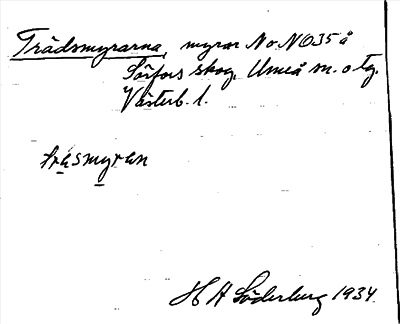 Trädsmyrarna, myrar No NO35 å
Sörfors skog, Umeå sn. o tg.
Västerb. l.
träsmyran
H A Söderburg 1934.